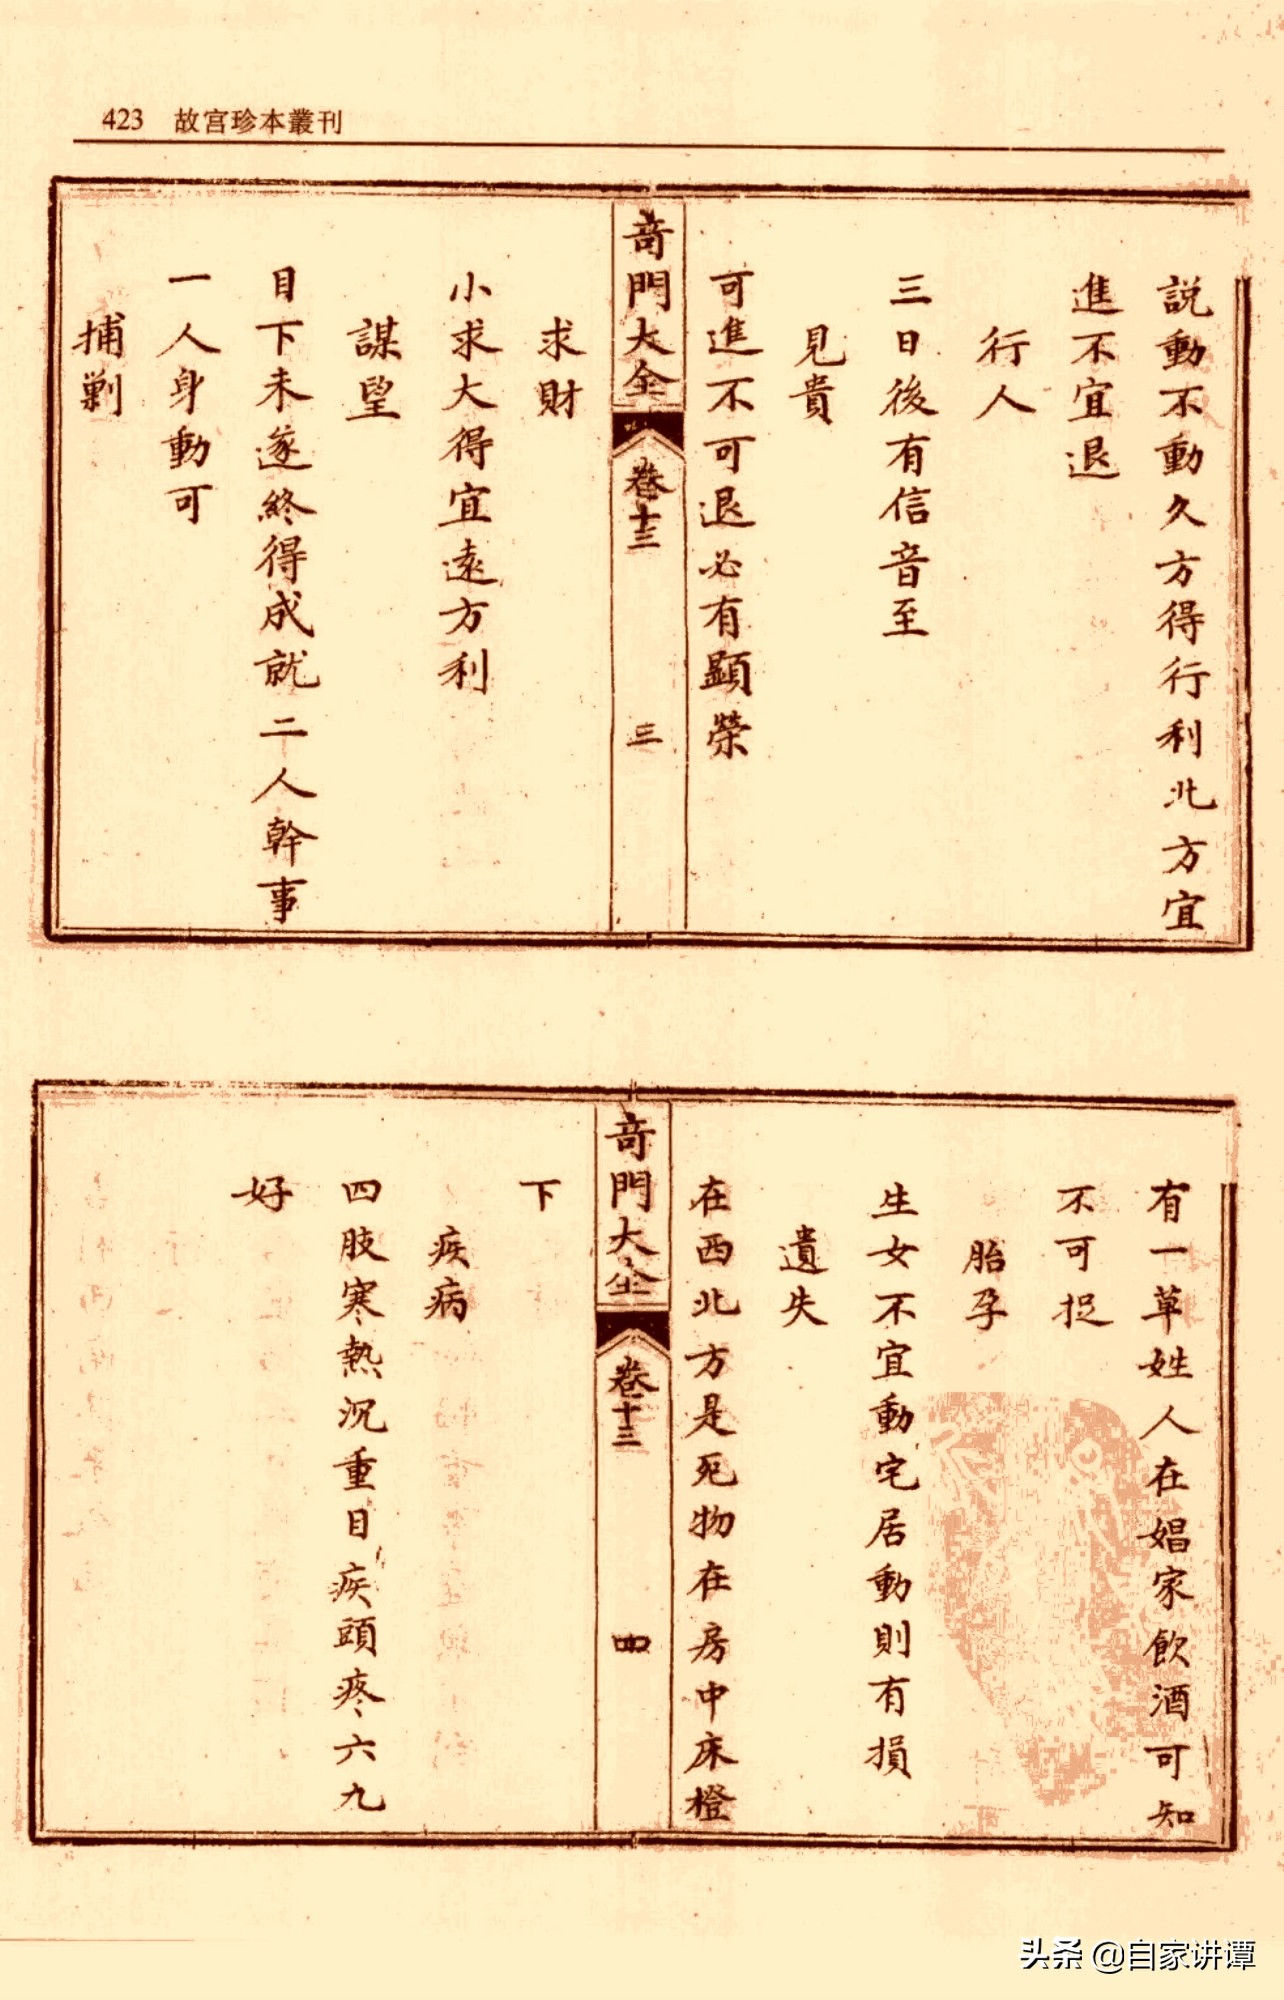 423 故宮珍本叢刊
説動不動久方得行利北方宜
進不宜退
行人
三日後有信音至
見貴
可進不可退必有顯榮
奇門大全 卷十三 三
求財
小求大得宜遠方利
謀望
目下未遂終得成就二人幹事
一人身動可
捕剿
有一草姓人在娼家飲酒可知
不可捉
胎孕
生女不宜動宅居動則有損
遺失
在西北方是死物在房中床橙
奇門大全 卷十三 四
下
疾病
四肢寒熱沉重目疾頭疼六九
好
头条 @自家讲谭